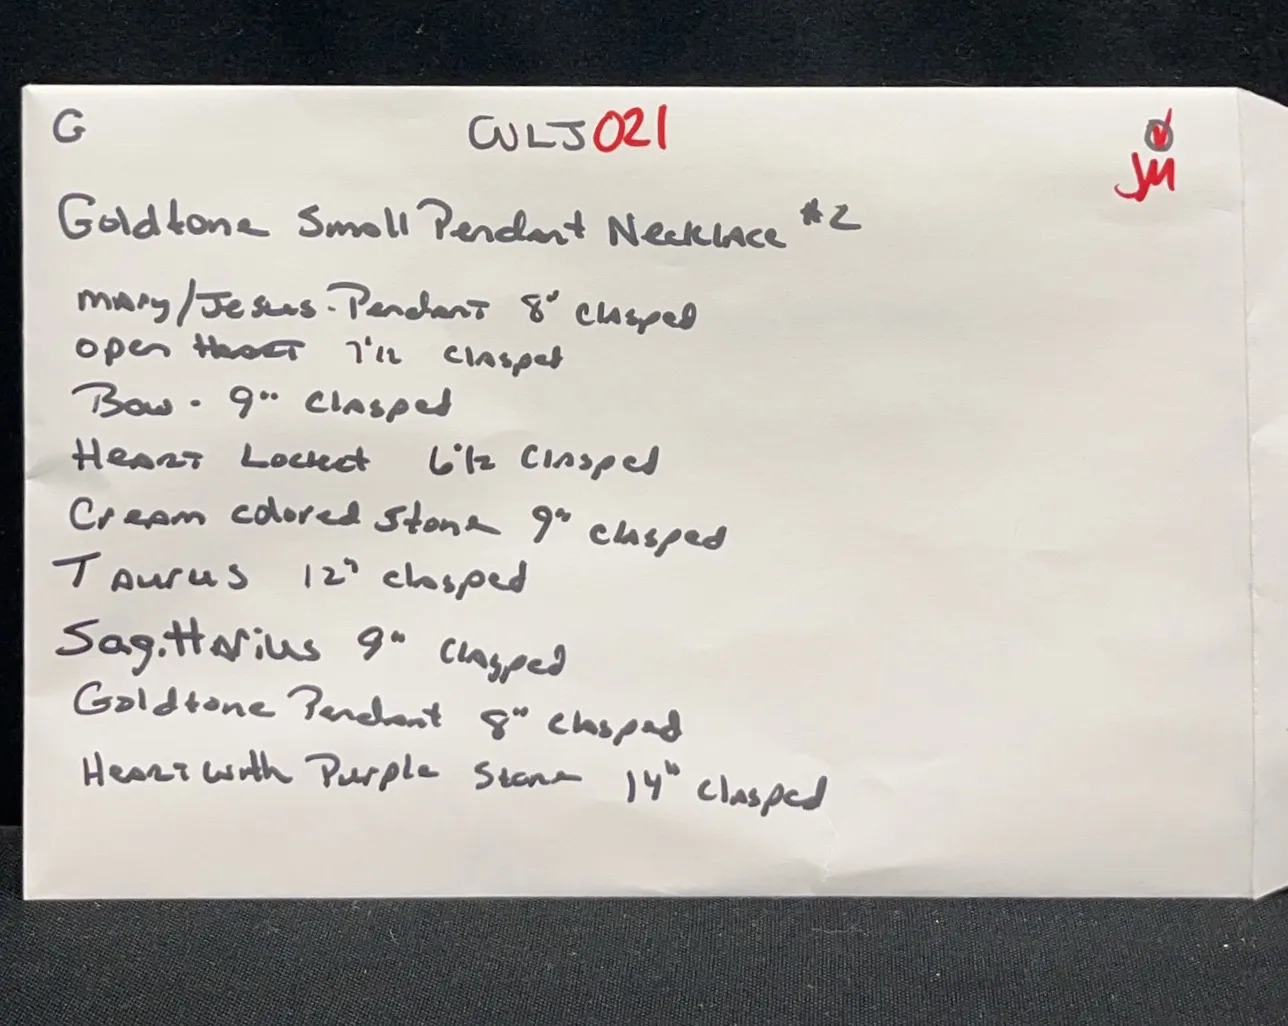 G CVLJ021
JM
Goldtone Small Pendant Necklace #2
Mary/Jesus-Pendant 8" clasped
open Heart 7 1/2 clasped
Bow - 9" clasped
Heart Locket 6 1/2 clasped
Cream colored stone 9" clasped
Taurus 12" clasped
Sagittarius 9" clasped
Goldtone Pendant 8" clasped
Heart with Purple Stone 14" clasped